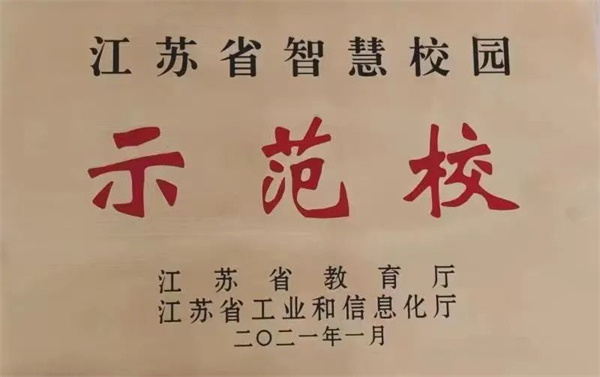 江苏省智慧校园
示范校
江苏省教育厅
江苏省工业和信息化厅
二〇二一年一月